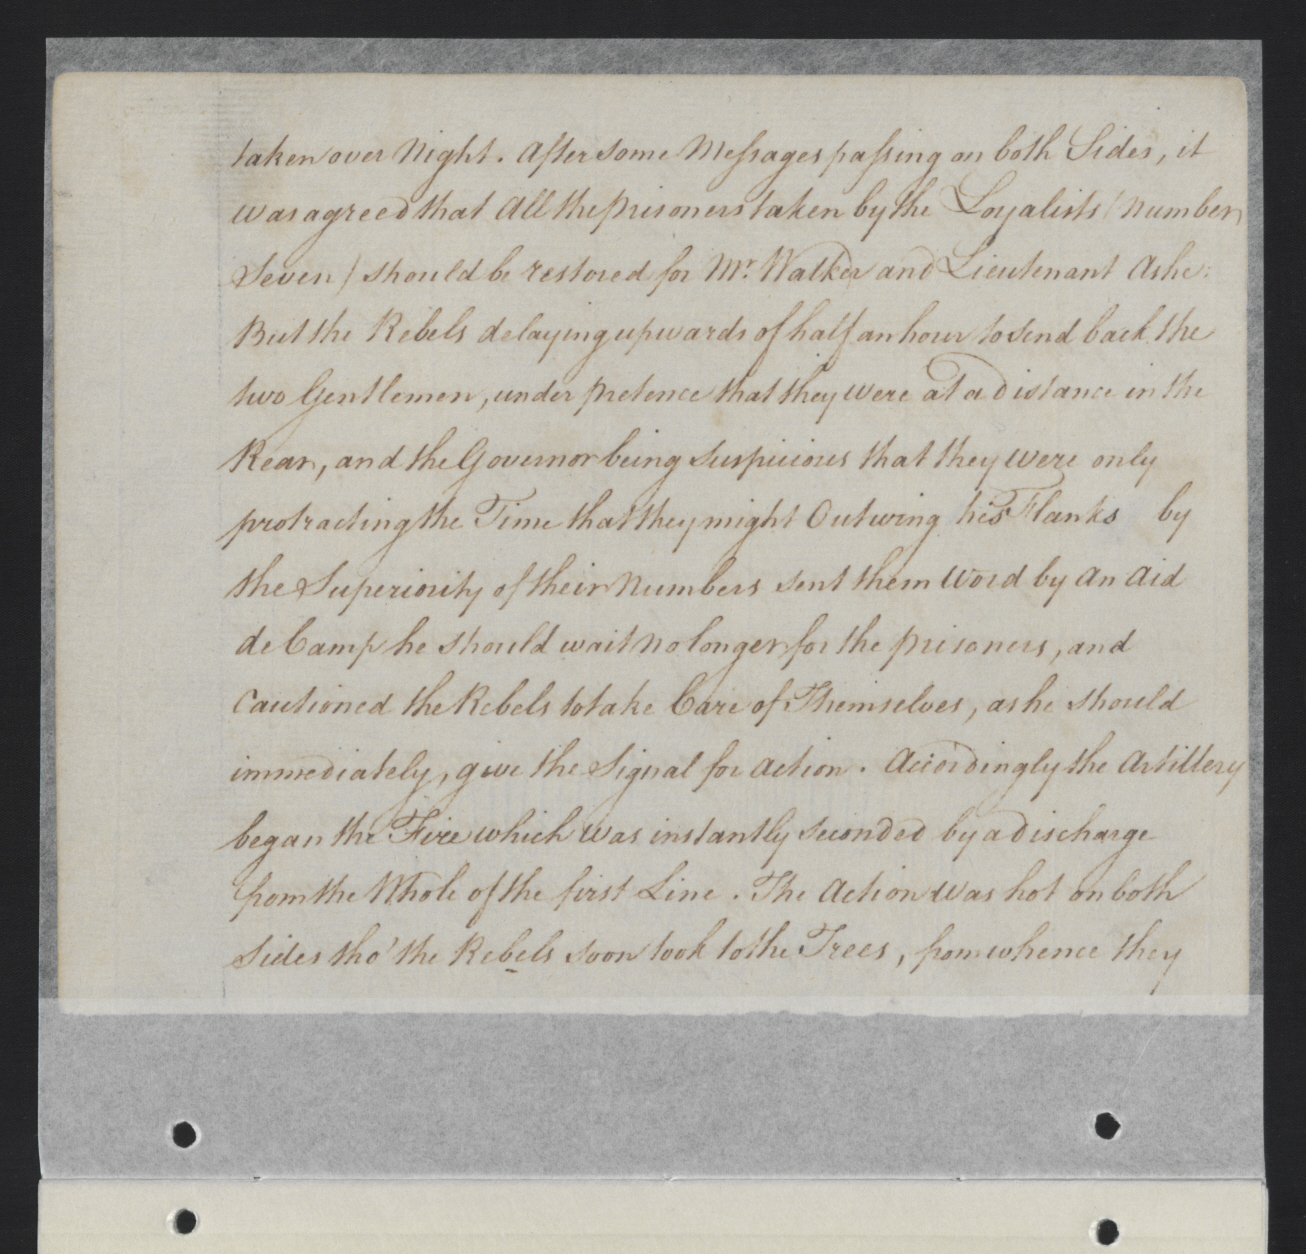 taken over Night. After some Messages passing on both Sides, it
was agreed that All the prisoners taken by the Loyalists (number
Seven) should be restored for Mr. Walker and Lieutenant Ashe:
But the Rebels delaying upwards of half an hour to send back the
two Gentlemen, under pretence that they were at a distance in the
Rear, and the Governor being suspicious that they were only
protracting the Time that they might Outwing his Flanks by
the Superiority of their Numbers sent them Word by An Aid
de Camp he should wait no longer for the prisoners, and
Cautioned the Rebels to take Care of Themselves, as he should
immediately, give the Signal for Action. Accordingly the Artillery
began the Fire which was instantly seconded by a discharge
from the Whole of the first Line. The Action was hot on both
Sides tho' the Rebels soon took to the Trees, from whence they